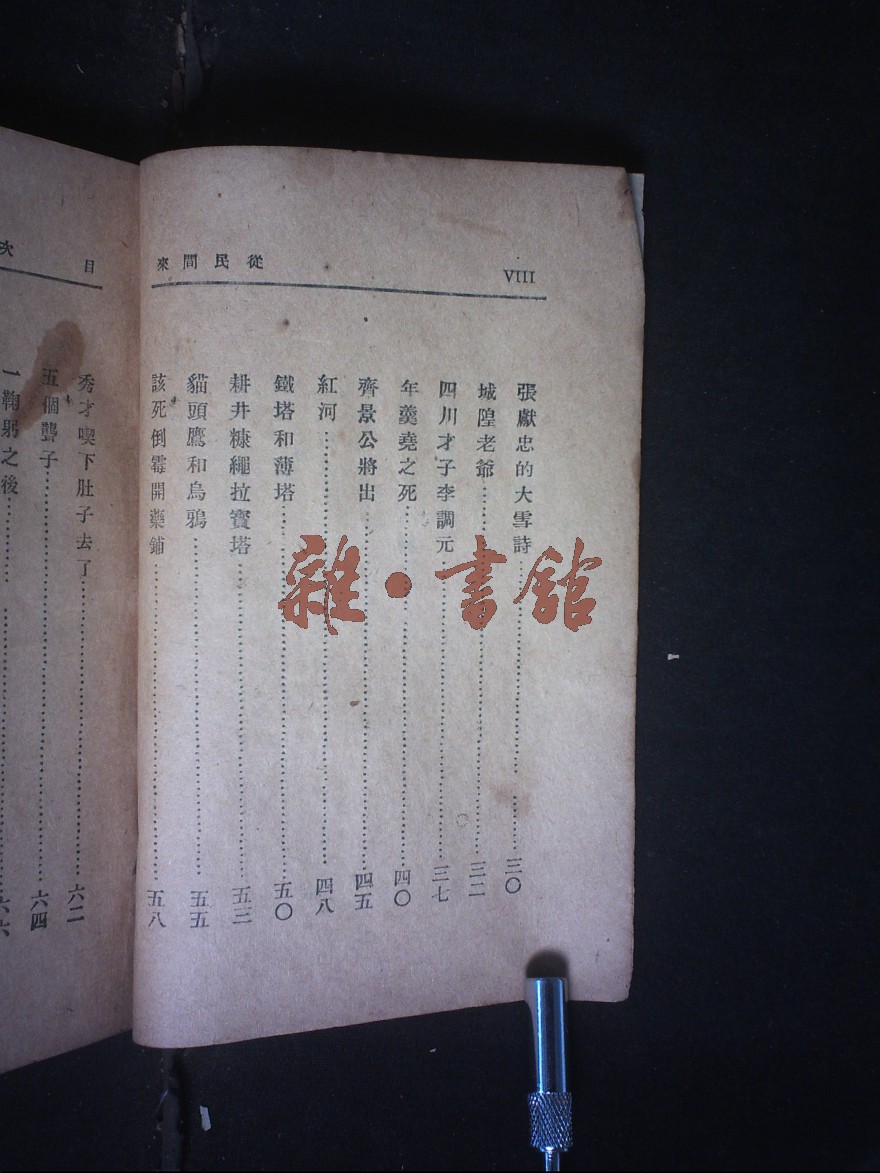 從民間來
VIII
張獻忠的大雪詩…………三〇
城隍老爺…………三二
四川才子李調元…………三七
年羹堯之死…………四〇
齊景公將出…………四五
紅河…………四八
鐵塔和薄塔…………五〇
耕井糠繩拉寶塔…………五三
貓頭鷹和烏鴉…………五五
該死倒霉開藥鋪…………五八
目次
秀才喫下肚子去了…………六二
五個聾子…………六四
一鞠躬之後…………六六
雜·書館